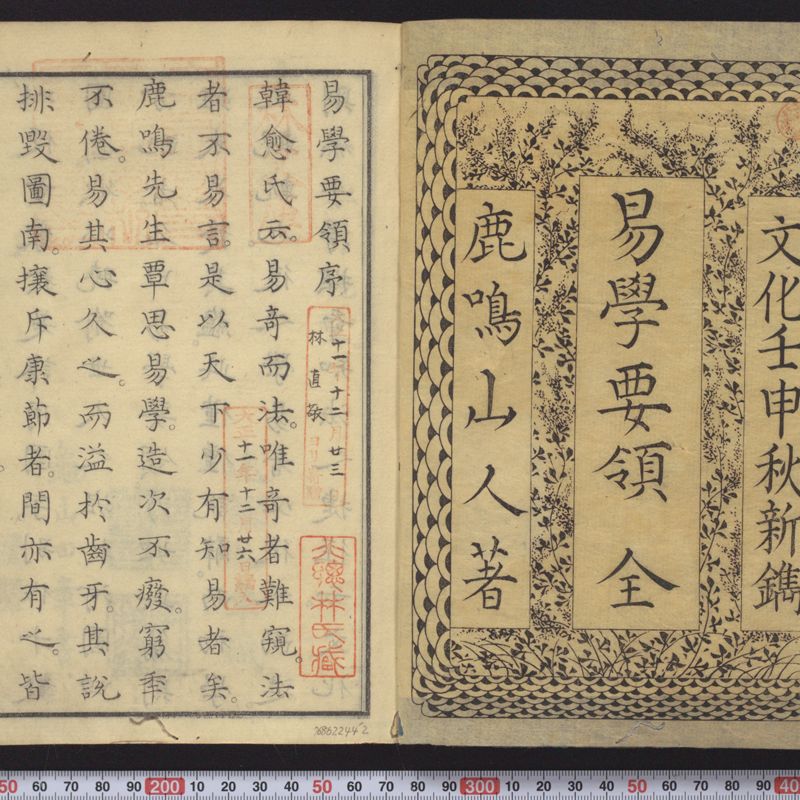 文化壬申秋新鐫
易學要領 全
鹿鳴山人著
易學要領序
韓愈氏云。易奇而法。唯奇者難窺。法
者不易言。是以天下少有知易者矣。
鹿鳴先生覃思易學。造次不廢。窮年
不倦。易其心久之。而溢於齒牙。其說
排毀圖南。攘斥康節者。間亦有之。皆
十一 十二月 廿三
林 直敬
十一年十二月廿六日
林氏蔵
768622442
50 60 70 80 90 200 10 20 30 40 50 60 70 80 90 300 10 20 30 40 50 60 70 80 90 40